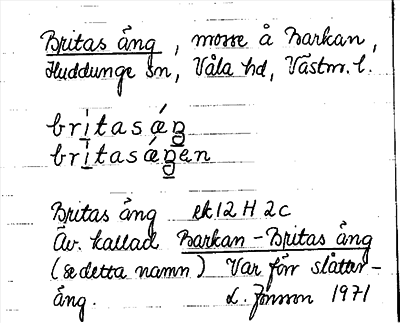 Britas äng, mosse å Barkan,
Huddunge sn, Våla hd, Västm. l.
britasáŋ
britasáŋen
Britas äng ek 12 H 2c
Äv. kallad Barkan-Britas äng
(se detta namn) Var förr slåtter-
äng. L. Jonsson 1971